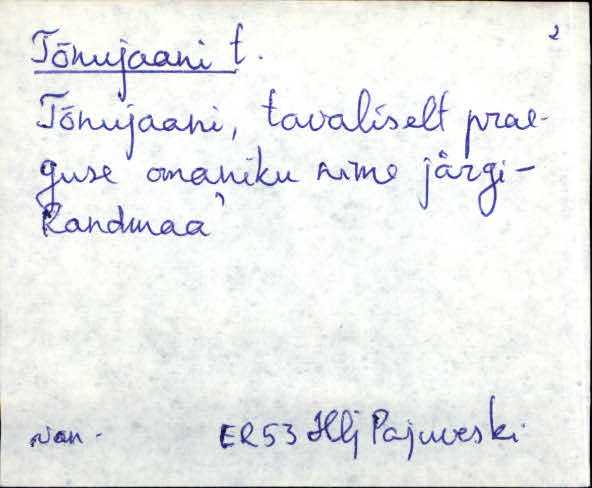 2
Tõnujaani t.
Tõnujaani, tavaliselt prae-
guse omaniku nime järgi -
Randmaa
ER53 Hlj Pajuveski